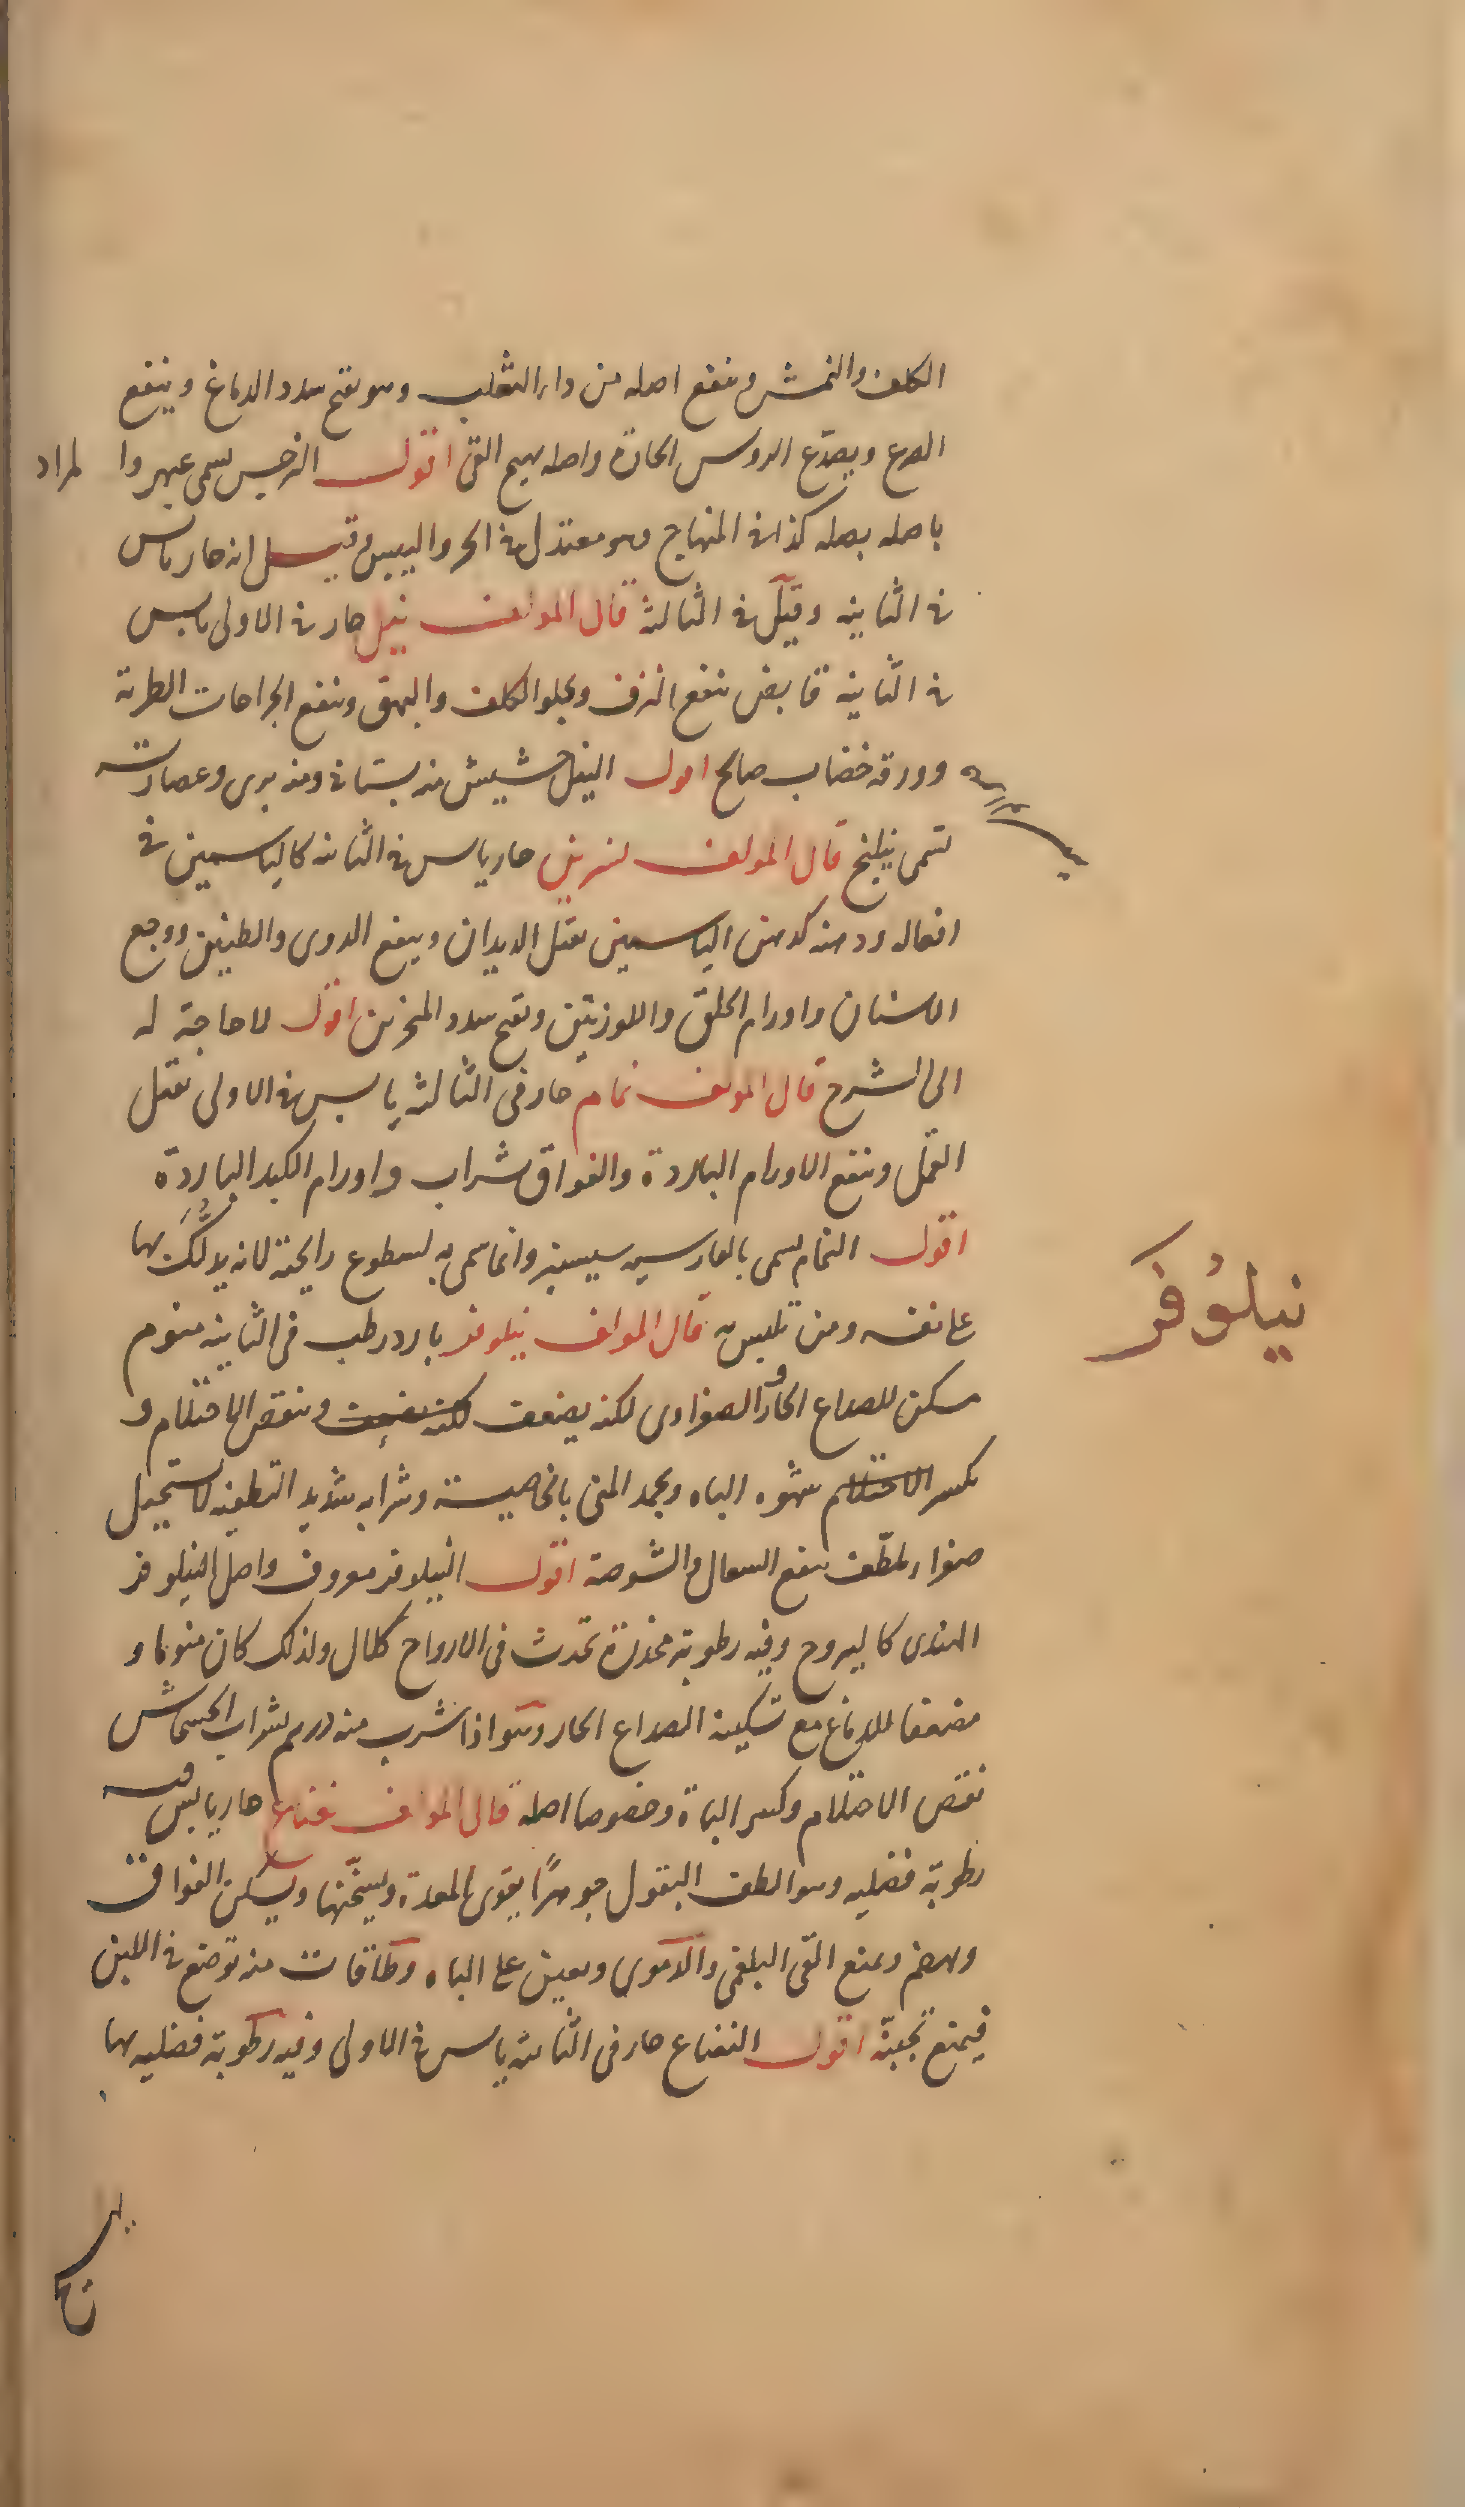 الكلف والنمش وينفع اصله من داء الثعلب وهو يفتح سدد الدماغ وينفع
الصرع ويصدع الروس الحارة واصله يهيج القئ اقول النرجس يسمى عبهر والمراد
باصله بصله كذا في المنهاج وهو معتدل في الحر واليبس وقيل انه حار يابس
في الثانيه وقيل في الثالثة قال المولف نيل حار في الاولى يابس
في الثانيه قابض ينفع النزف ويجلو الكلف والبهق وينفع الجراحات الطرية
وورقه خضاب صالح اقول النيل حشيش منه بستاني ومنه بري وعصارته
تسمى نيلنج قال المولف نسرين حار يابس في الثانيه كالياسمين في
افعاله ودهنه كدهن الياسمين يقتل الديدان وينفع الدوى والطنين ووجع
الاسنان واورام الحلق واللوزتين ويفتح سدد المنخرين اقول لا حاجة له
الى الشرح قال المولف نمام حار في الثالثة يابس في الاولى يقتل
القمل وينفع الاورام الباردة والفواق بشراب واورام الكبد الباردة
اقول النمام يسمى بالفارسيه سيسنبر وانما سمى به لسطوع رايحته لانه يدلك بها
على نفسه ومن تلبس به قال المولف نيلوفر بارد رطب في الثانيه منوم
مسكن للصداع الحار والصفراوى لكنه يضعف لكنه يضعف وينقص الاحتلام و
يكسر الاحتلام شهوه الباه ويجمد المنى بالخاصية وشرابه شديد التطفيه لا يستحيل
صفراء ملطف ينفع السعال والشوصة اقول النيلوفر معروف واصل النيلوفر
الهندى كاليبروح وفيه رطوبة مخدرة تحدث في الارواح كلال ولذلك كان منوما و
مضعفا للدماغ مع تسكينه الصداع الحار وهو اذا شرب منه درهم بشراب الخشخاش
نقص الاحتلام وكسر الباة وخصوصا اصله قال المولف نعناع حار يابس فيه
رطوبة فضليه وهو الطف البقول جوهرًا يقوى المعدة ويسخنها ويسكن الفواق
ويهضم ويمنع القى البلغمى والدموى ويعين على الباه وطاقات منه توضع في اللبن
فيمنع تجبنه اقول النعناع حار في الثانية يابس في الاولى وفيه رطوبة فضليه بها
نيلوفر